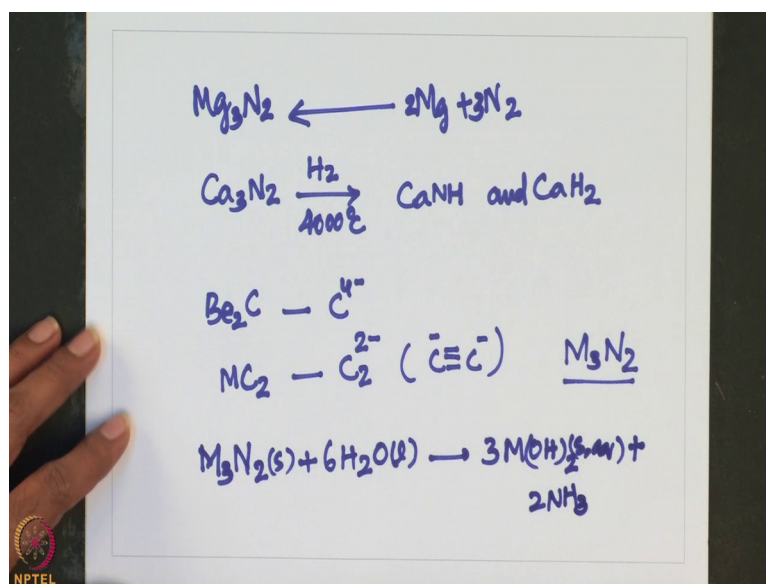 Mg₃N₂ ⟵ 2Mg + 3N₂
Ca₃N₂ —H₂/400°C→ CaNH and CaH₂
Be₂C — C⁴⁻
MC₂ — C₂²⁻ (C̄≡C̄) M₃N₂
M₃N₂(s) + 6H₂O(l) ⟶ 3M(OH)₂(s, aq) +
2NH₃
NPTEL